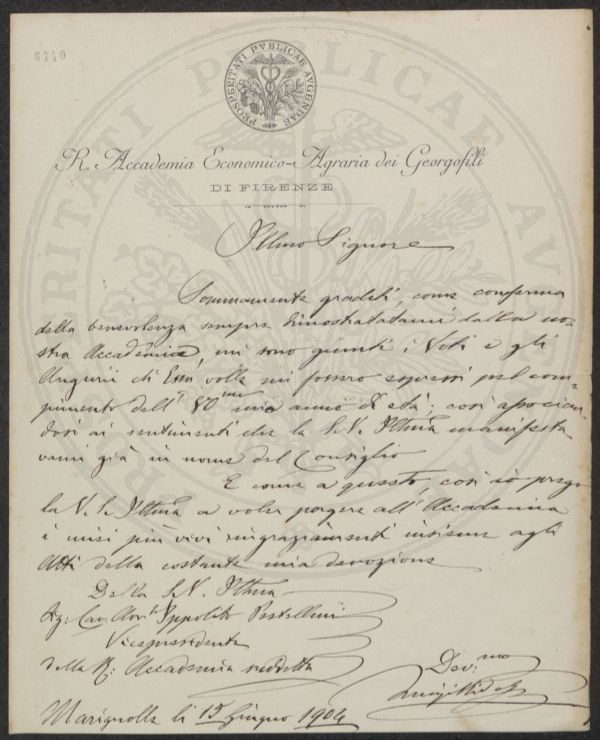 6740
PROSPERITATI PVBLICAE AVGENDAE
R. Accademia Economico-Agraria dei Georgofili
DI FIRENZE
Illmo Signore
Sommamente graditi, come conferma
della benevolenza sempre dimostratami dalla no-
stra Accademia, mi sono giunti i Voti e gli
Augurii che Essa volle mi fossero espressi pel com-
pimento dell' 80mo mio anno di età; così associan-
dosi ai sentimenti che la S.V. Illma manifesta-
vami già in nome del Consiglio
E come a questo, così io prego
la V. S. Illma a voler porgere all'Accademia
i miei più vivi ringraziamenti insieme agli
Atti della costante mia devozione
Della S.V. Illma
Sig: Cav. Avv.to Ippolito Pestellini
Vicepresidente
della R: Accademia suddetta
Dev.mo
Luigi
Marignolle li 15 Giugno 1904